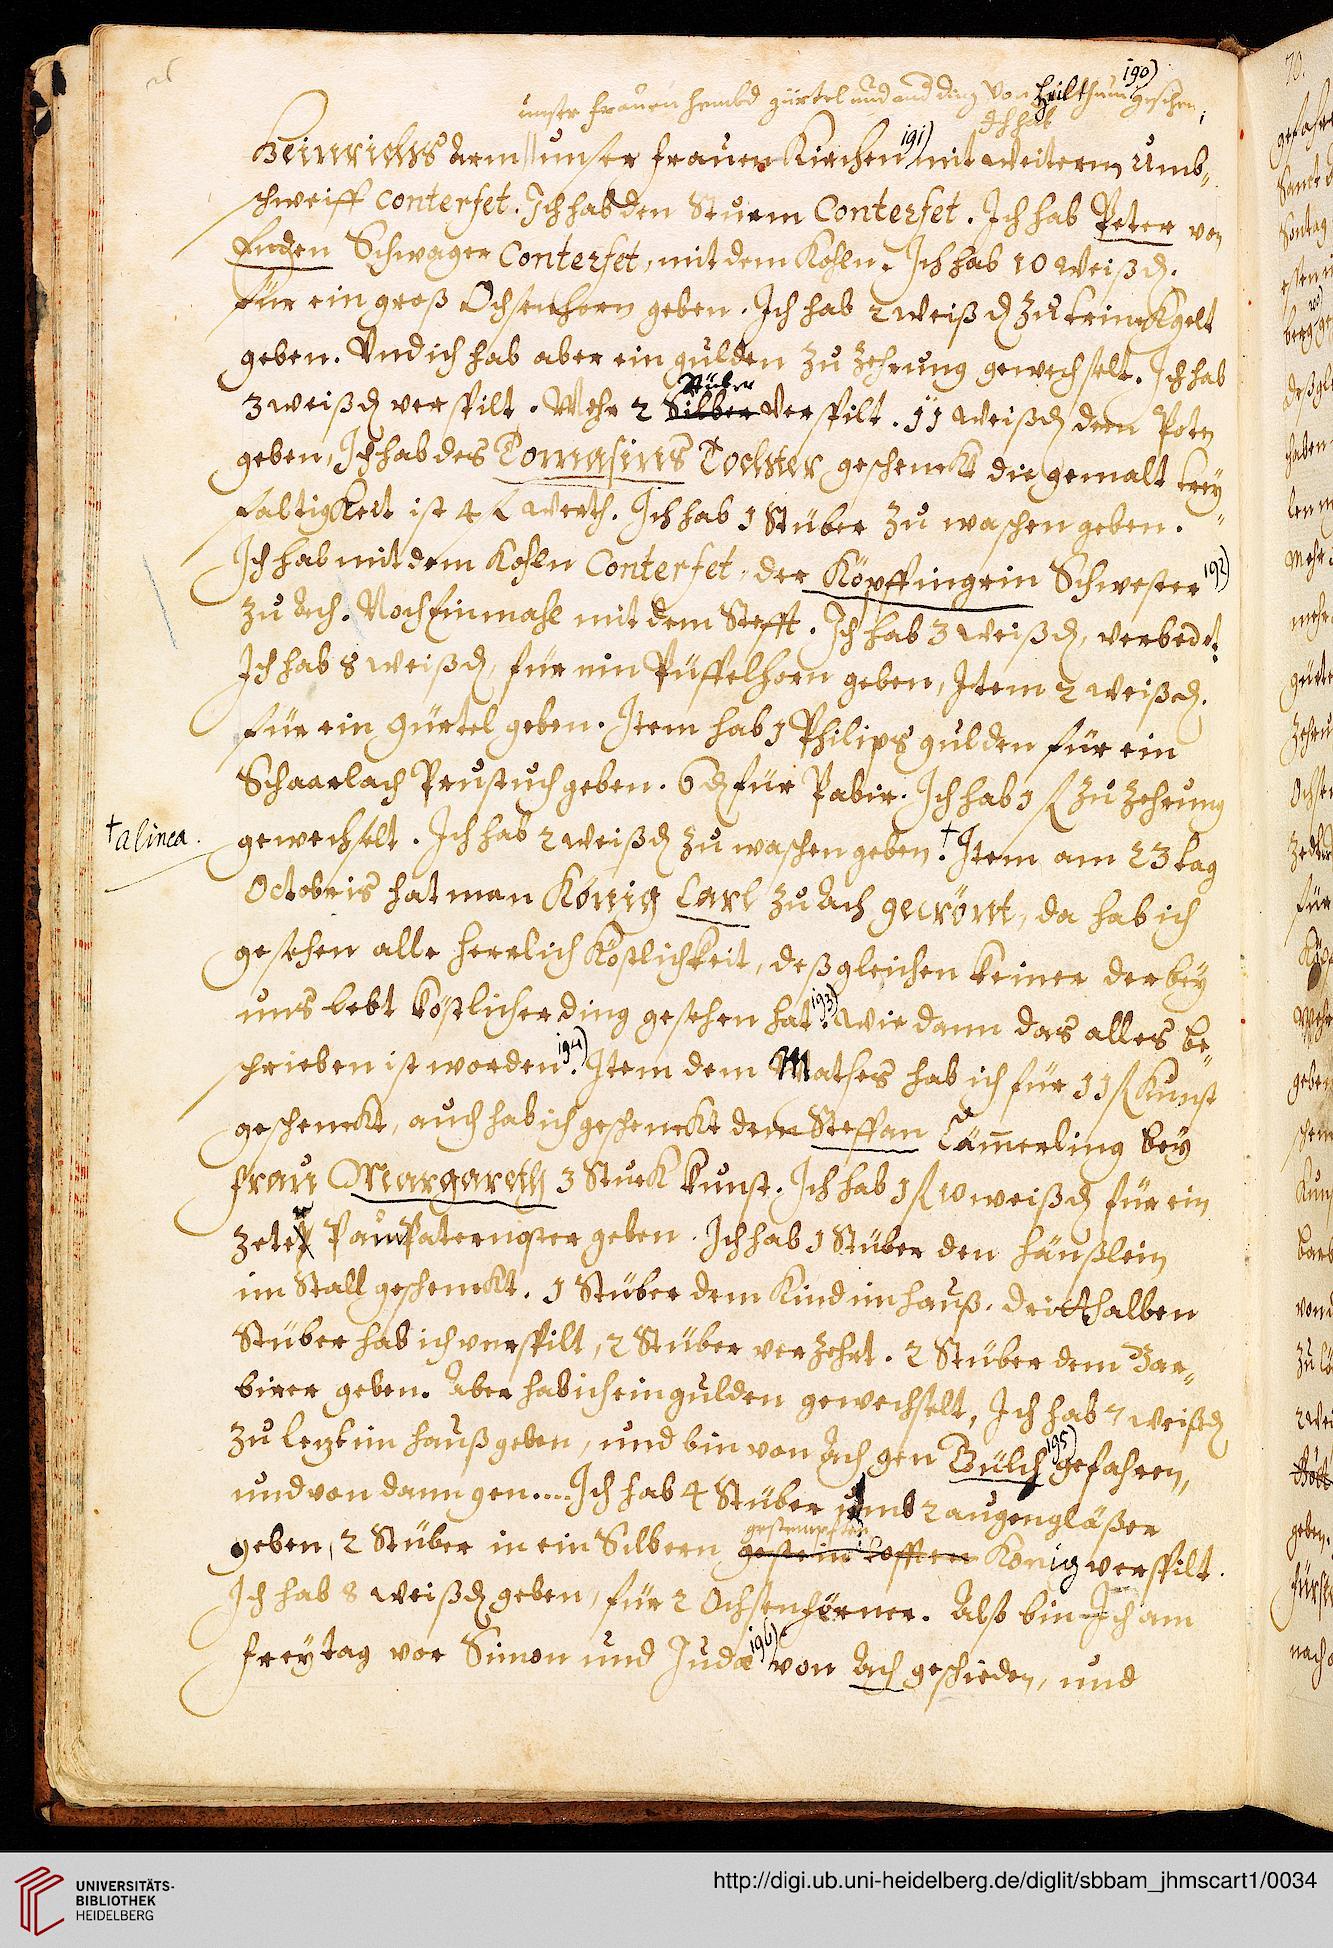 unser frauen hembd gürtel und and ding von Heilthum 190) geschen;
Ich hab
Heinrichs Arm || unser frauen Kirchen 191) mit weiterm Umb„
schweiff Conterfet. Ich hab den Sturm Conterfet. Ich hab Peter von
Enden Schwager Conterfet, mit dem Kohln. Ich hab 10 weiß ₰.
für ein groß Ochsenhorn geben. Ich hab 2 weiß ₰ zu trinckgelt
geben. Und ich hab aber ein gulden zu Zehrung gewechselt. Ich hab
3 weiß ₰ verspilt. Mehr 2 Silber verspilt. 11 weiß ₰ dem Poten
Stüber
geben, Ich hab des Tomasins Tochter geschenckt die gemalt trey„
faltigkeit ist 4 fl werth. Ich hab 1 Stüber zu waschen geben.
Ich hab mit dem Kohln Conterfet der Köpffingrin Schwester 192)
zu Ach. Noch Einmahl mit dem Stefft. Ich hab 3 weiß ₰, verbedt.
Ich hab 8 weiß ₰, für ein Püffelhorn geben, Item 2 weiß ₰.
für ein Gürtel geben. Item hab 1 Philips gulden für ein
Schaarlach Prustuch geben. 6 ₰ für Pabir. Ich hab 1 fl zu Zehrung
† alinea.
gewechselt. Ich hab 2 weiß ₰ zu waschen geben. † Item am 23 tag
Octobris hat man König Carl zu Ach gecrönt, da hab ich
gesehen alle herrlich Köstlichkeit, deßgleichen keiner der bey
uns lebt köstlicher ding gesehen hat. 193) wie dann das alles be„
schrieben ist worden. 194) Item dem Mathes hab ich für 11 fl Kunst
geschenckt, auch hab ich geschenckt dem Steffan Cämerling bey
frau Margareth 3 Stuck kunst. Ich hab 1 fl 10 weiß ₰ für ein
Paternoster geben. Ich hab 1 Stüber den häußlein
im Stall geschenckt. 1 Stüber dem Kind im hauß. dritthalben
Stüber hab ich verspilt, 2 Stüber verzehrt. 2 Stüber dem Bar„
birer geben. Aber hab ich ein gulden gewechselt, Ich hab 7 weiß ₰
zu letzt im hauß geben, und bin von Ach gen Gülch 195) gefahren,
und von dann gen.... Ich hab 4 Stüber umb 2 augengläßer
geben, 2 Stüber in ein Silbern König verspilt.
gestempften
Ich hab 8 weiß ₰ geben, für 2 Ochsenhörner. Alß bin Ich am
freytag vor Simon und Judæ 196) von Ach geschieden, und
UNIVERSITÄTS-
BIBLIOTHEK
HEIDELBERG
http://digi.ub.uni-heidelberg.de/diglit/sbbam_jhmscart1/0034